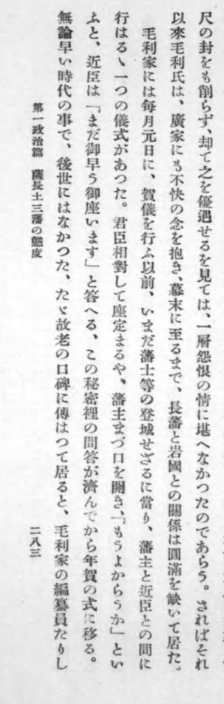 尺の封をも削らず、却て之を優遇せるを見ては、一層怨恨の情に堪へなかつたのであらう。さればそれ
以來毛利氏は、廣家にも不快の念を抱き、幕末に至るまで、長藩と岩國との關係は圓滿を缺いて居た。
毛利家には毎月元日に、賀儀を行ふ以前、いまだ藩士等の登城せざるに當り、藩主と近臣との間に
行はるゝ一つの儀式があつた。君臣相對して座定まるや、藩主まづ口を開き、「もうよからうか」とい
ふと、近臣は「まだ御早う御座います」と答へる、この秘密裡の問答が濟んでから年賀の式に移る。
無論早い時代の事で、後世にはなかつた、たゞ故老の口碑に傳はつて居ると、毛利家の編纂員たりし
第一政治篇 薩長土三藩の態度
二八三